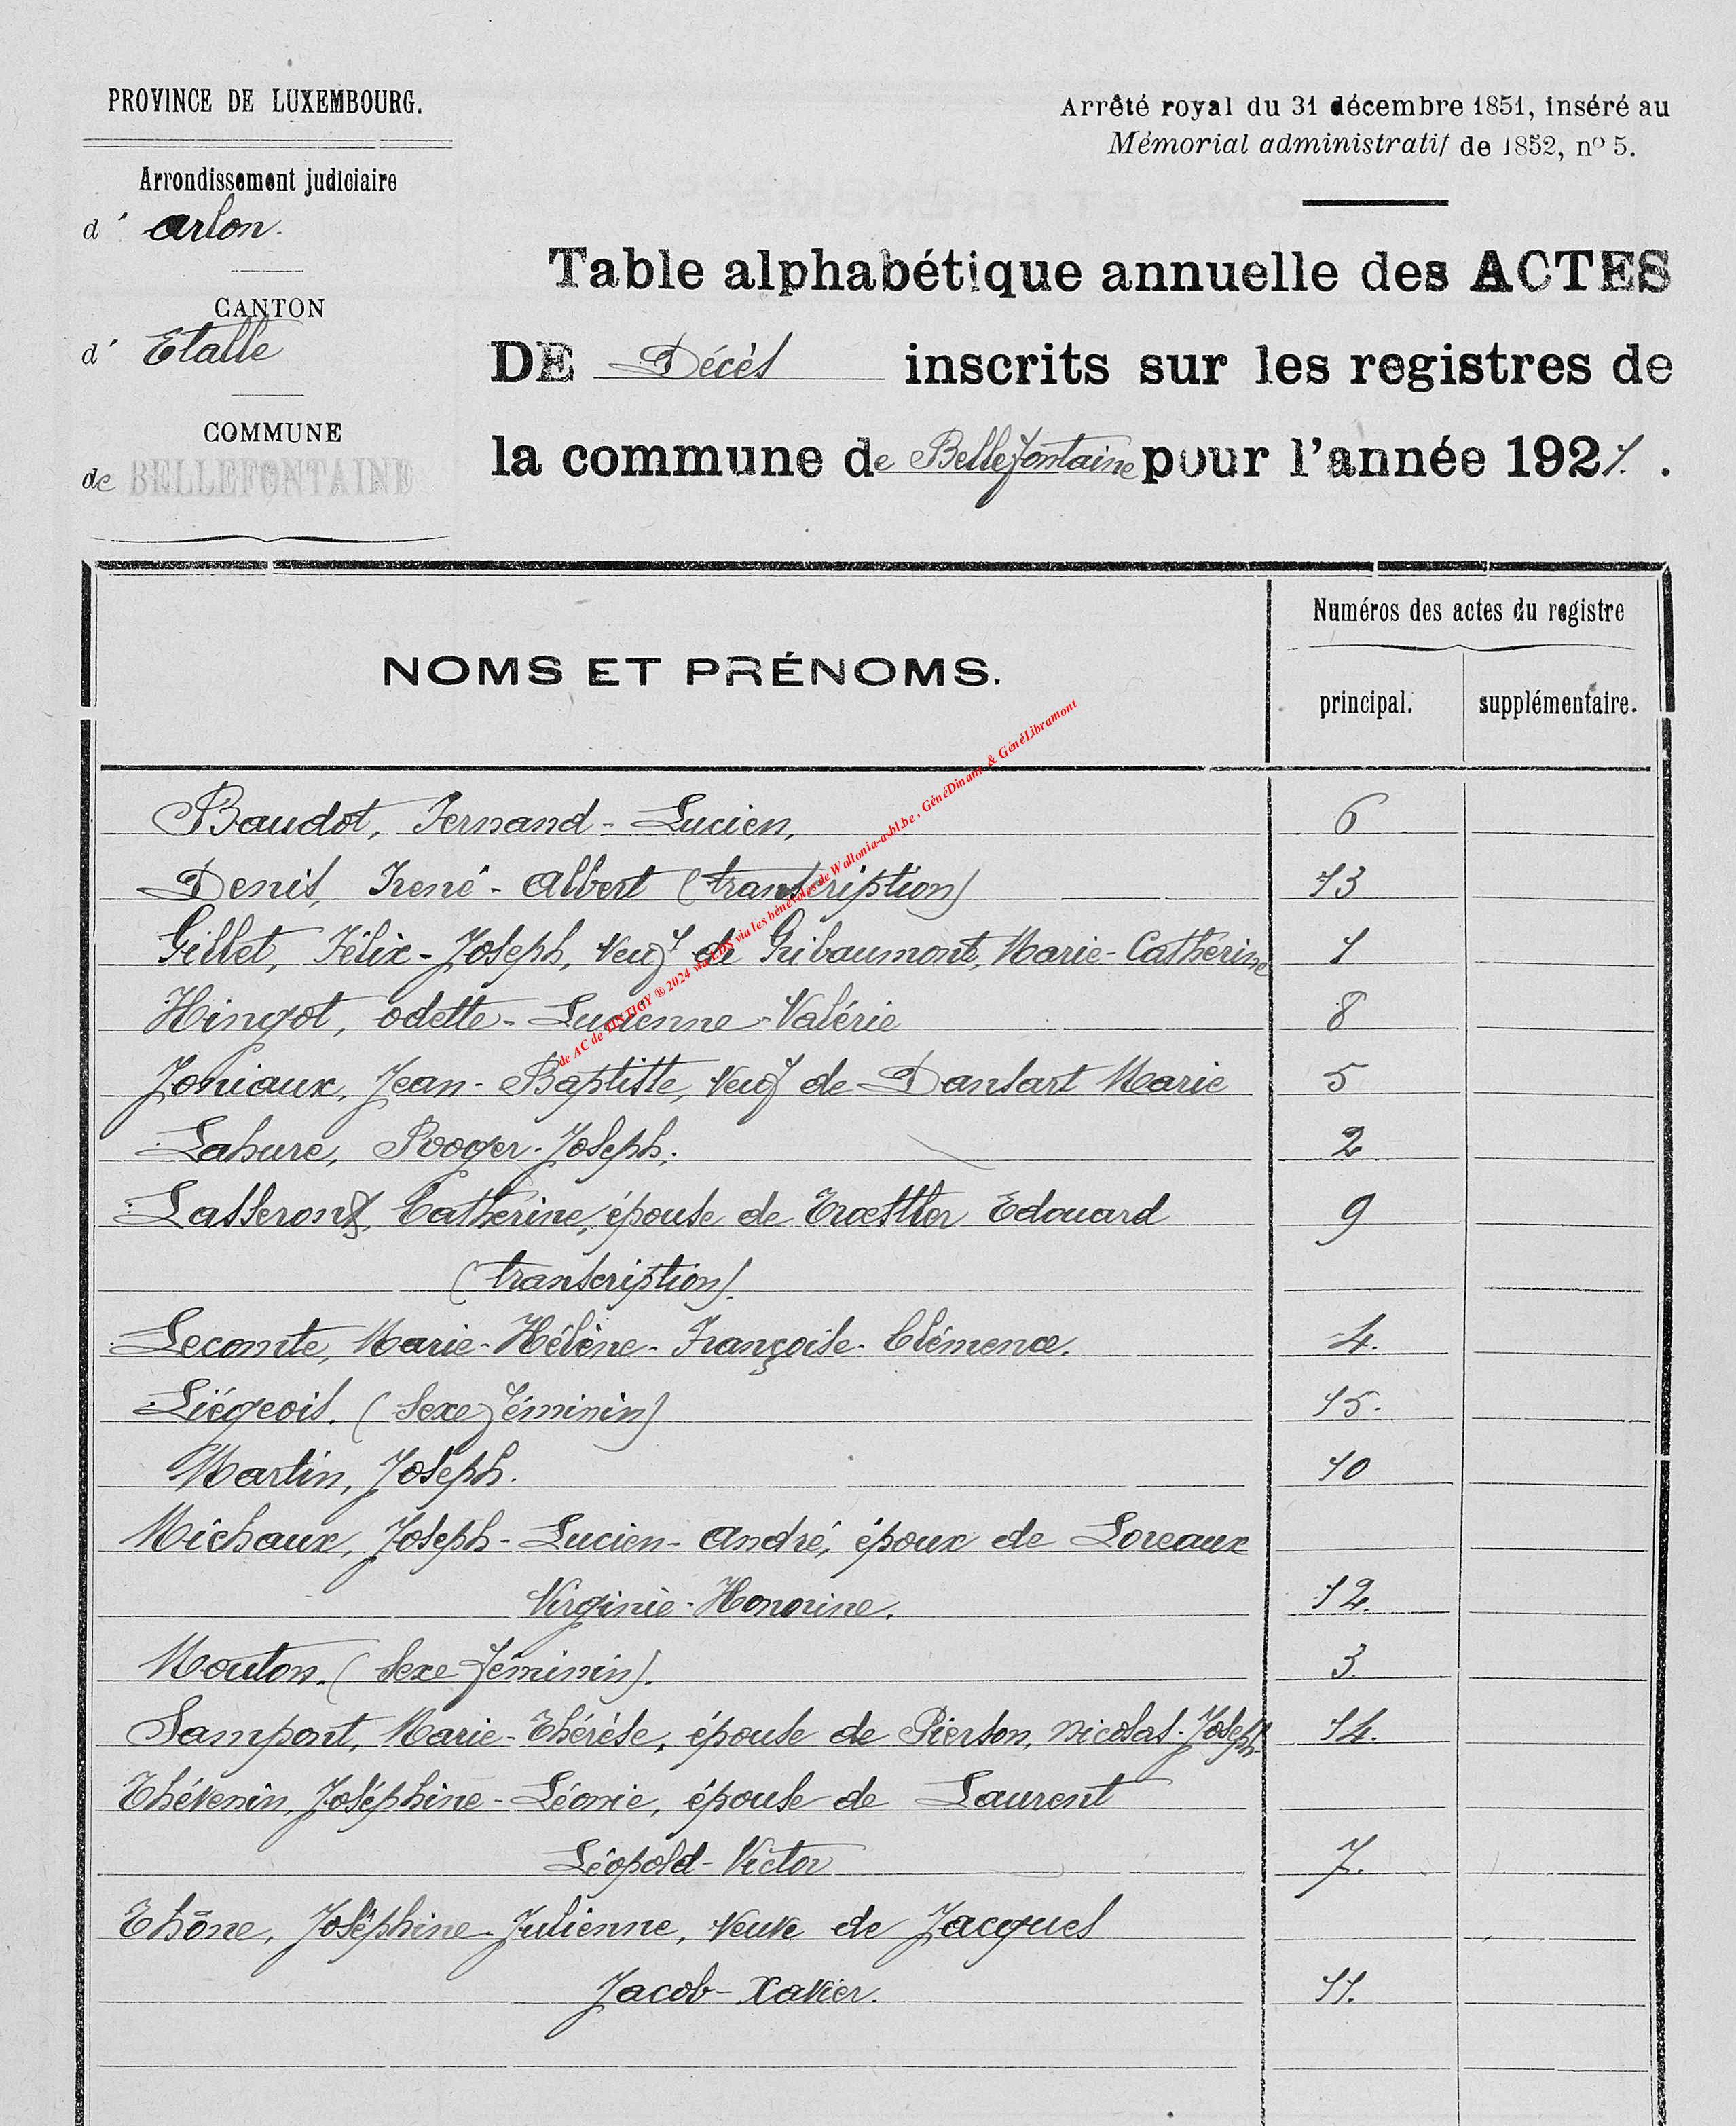 PROVINCE DE LUXEMBOURG.
Arrondissement judiciaire
d' Arlon.
CANTON
d' Etalle
COMMUNE
de BELLEFONTAINE
Arrêté royal du 31 décembre 1851, inséré au
Mémorial administratif de 1852, nº 5.
Table alphabétique annuelle des ACTES
DE Décès inscrits sur les registres de
la commune de Bellefontaine pour l'année 1921.
NOMS ET PRÉNOMS.
Numéros des actes du registre
principal. supplémentaire.
Baudot, Fernand - Lucien, 6
Denis, René - Albert (transcription) 13
Gillet, Félix - Joseph, veuf de Gribaumont, Marie - Catherine 1
Hingot, Odette - Lucienne - Valérie 8
Joniaux, Jean - Baptiste, veuf de Dansart Marie 5
Lahure, Rooger - Joseph. 2
Lasseront, Catherine, épouse de Troestler Edouard 9
(transcription).
Lecomte, Marie - Hélène - Françoise - Clémence. 4.
Liégeois. (sexe féminin) 15.
Martin, Joseph. 10
Michaux, Joseph - Lucien - André, époux de Loreaux
Virginie - Honorine. 12.
Mouton. (sexe féminin). 3
Sampont, Marie - Thérèse, épouse de Pierson, Nicolas - Joseph 14.
Thévenin, Joséphine - Léonie, épouse de Laurent
Léopold - Victor 7.
Thône, Joséphine - Julienne, veuve de Jacques
Jacob - Xavier. 11.
de AC de TINTIGY ® 2024 via LDS via les bénévoles de Wallonia-asbl.be, GénéDinant & GénéLibramont